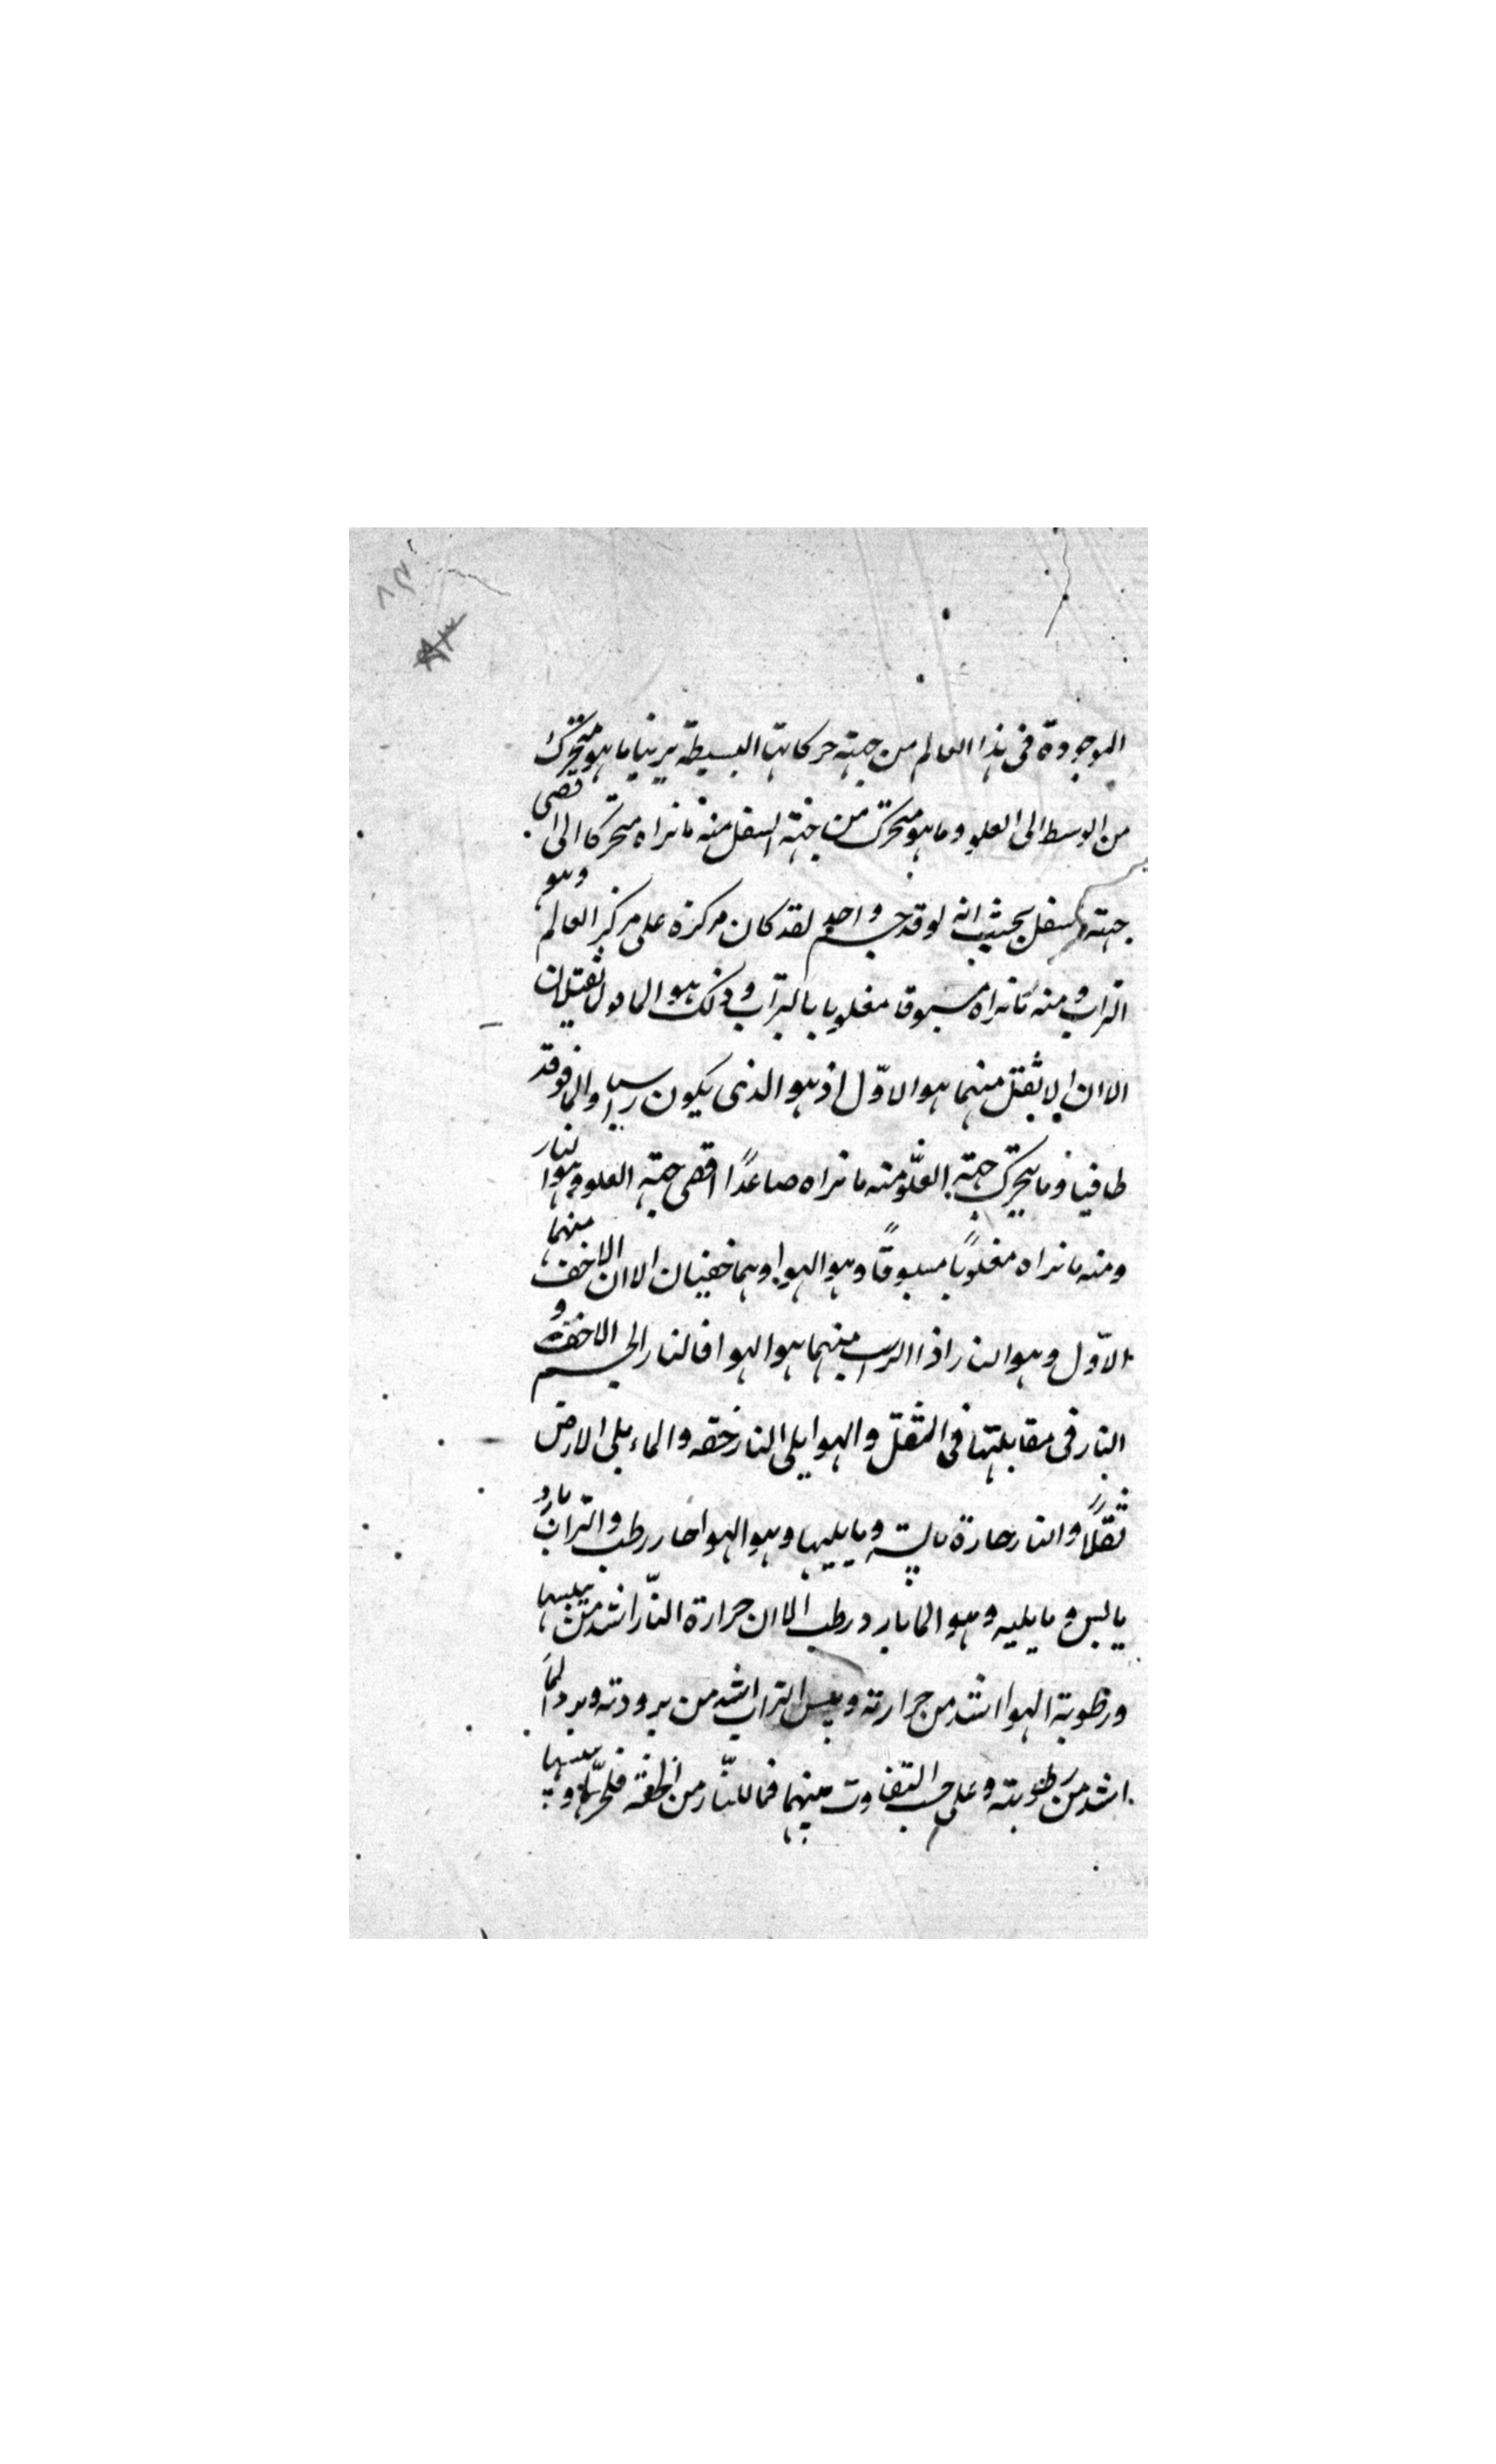 الموجودة فى هذا العالم من جهة حركاتها البسيطة يرينا ما هو متحرك
من الوسط الى العلو وما هو متحرك من جهة السفل منه ما نراه متحركا الى اقصى
جهة السفل بحيث انه لو قد جسم واحد لقد كان مركزه على مركز العالم وهو
التراب ومنه ما نراه مسبوقا مغلوبا بالتراب وذلك هو الما وان ثقيلان
الا ان الا ثقل منهما هو الاوّل اذ هو الذى يكون راسبا والما فوقه
طافيا وما يتحرك جهة العلّو منه ما نراه صاعدًا اقصى جهة العلو وهو النار
ومنه ما نراه مغلوبًا مسبوقًا وهو الهوا وهما خفيفان الا ان الاخف منهما
الاوّل وهو النار اذ الراسب منهما هو الهوا فالنار الجسم الاخف و
النار فى مقابلتها فى الثقل والهوا يلى النار خفه والماء يلى الارض
ثقلًا والنار حارة يابسة وما يليها وهو الهوا حار رطب والتراب بارد
يابس وما يليه وهو الما بارد رطب الا ان حرارة النّار اشد من يبسها
ورطوبة الهوا اشد من حرارته ويبس التراب اشد من برودته وبرد الما
اشد من رطوبته وعلى حسب التفاوت بينهما فما للنّار من الخفة فلحرّها و يبسها